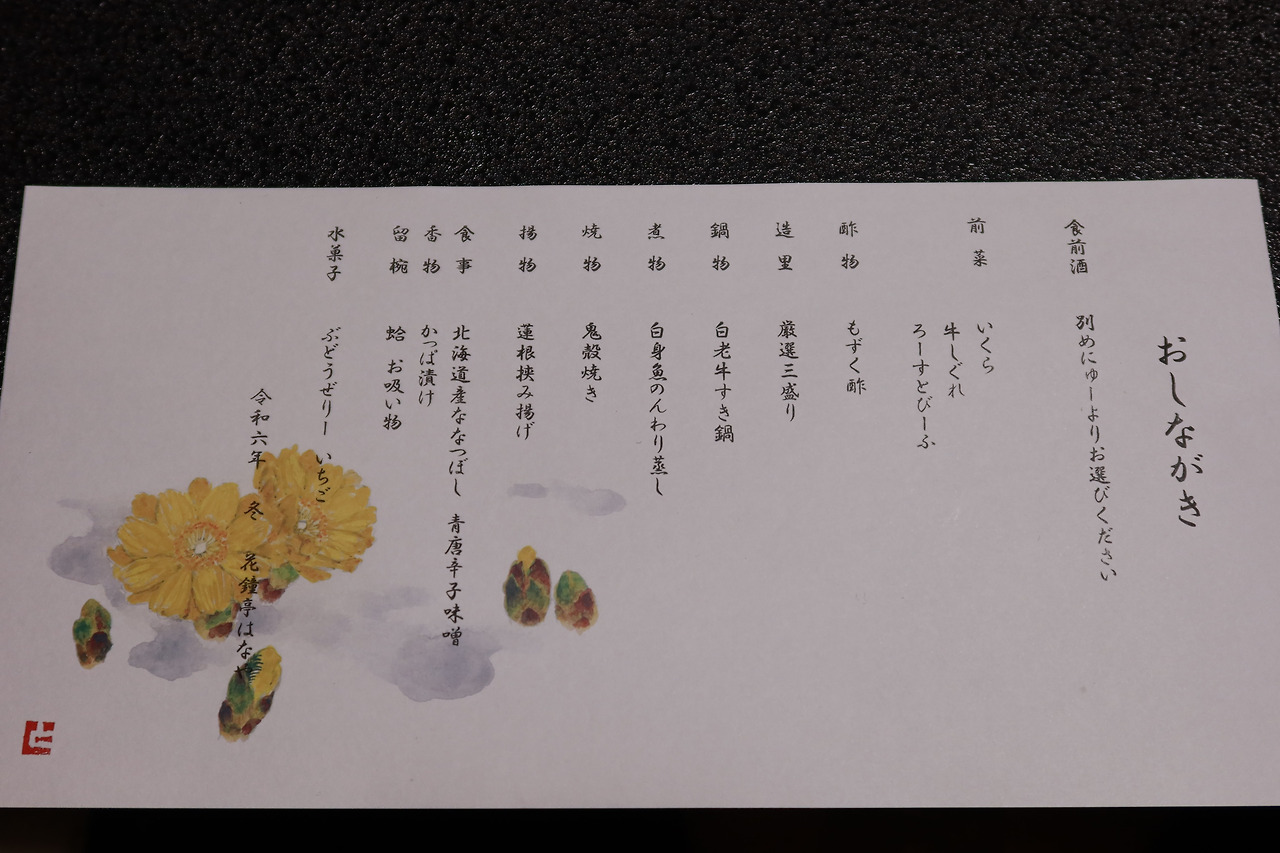 おしながき
食前酒 別めにゅーよりお選びください
前菜 いくら
牛しぐれ
ろーすとびーふ
酢物 もずく酢
造里 厳選三盛り
鍋物 白老牛すき鍋
煮物 白身魚のんわり蒸し
焼物 鬼殻焼き
揚物 蓮根挟み揚げ
食事 北海道産ななつぼし 青唐辛子味噌
香物 かっぱ漬け
留椀 蛤 お吸い物
水菓子 ぶどうぜりー いちご
令和六年 冬 花鐘亭はなや